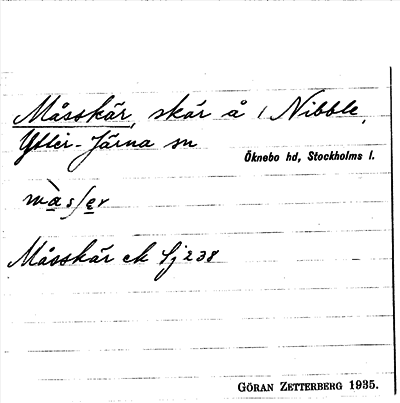 Måsskär, skär å / Nibble,
Ytter-Järna sn
Öknebo hd, Stockholms l.
Måsskär ek Sj 238
GÖRAN ZETTERBERG 1935.